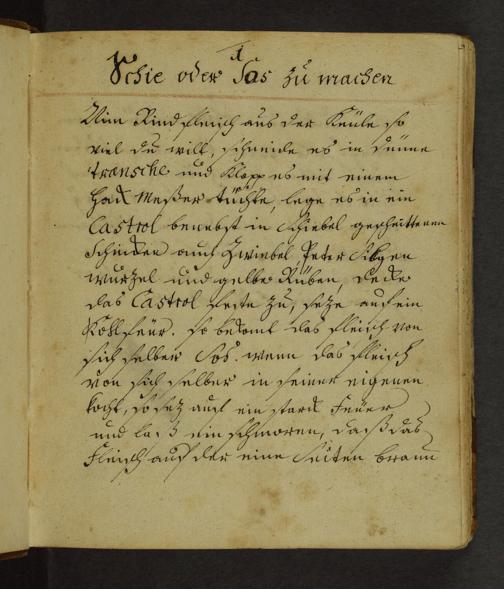 1
Schie oder Sos zu machen
Nim Rindfleisch aus der Keule so
viel du will, schneide es in dünne
transche und Klopp es mit einem
Hack Meßer tüchte, lege es in ein
Castrol benebst in Schiebel geschnittenen
Schincken auch Zwiebel, Peter Silgen
wurzel und gelbe Rüben, decke
das Castrol feste zu, seze auf ein
Kohlfeür. so bekomt das fleisch von
sich selber Sos. wenn das fleisch
von sich selber in seiner eigenen
kocht, so sez auf ein starck Feüer
und laß ein schmoren, daß das
Fleisch auf der eine Seiten braun